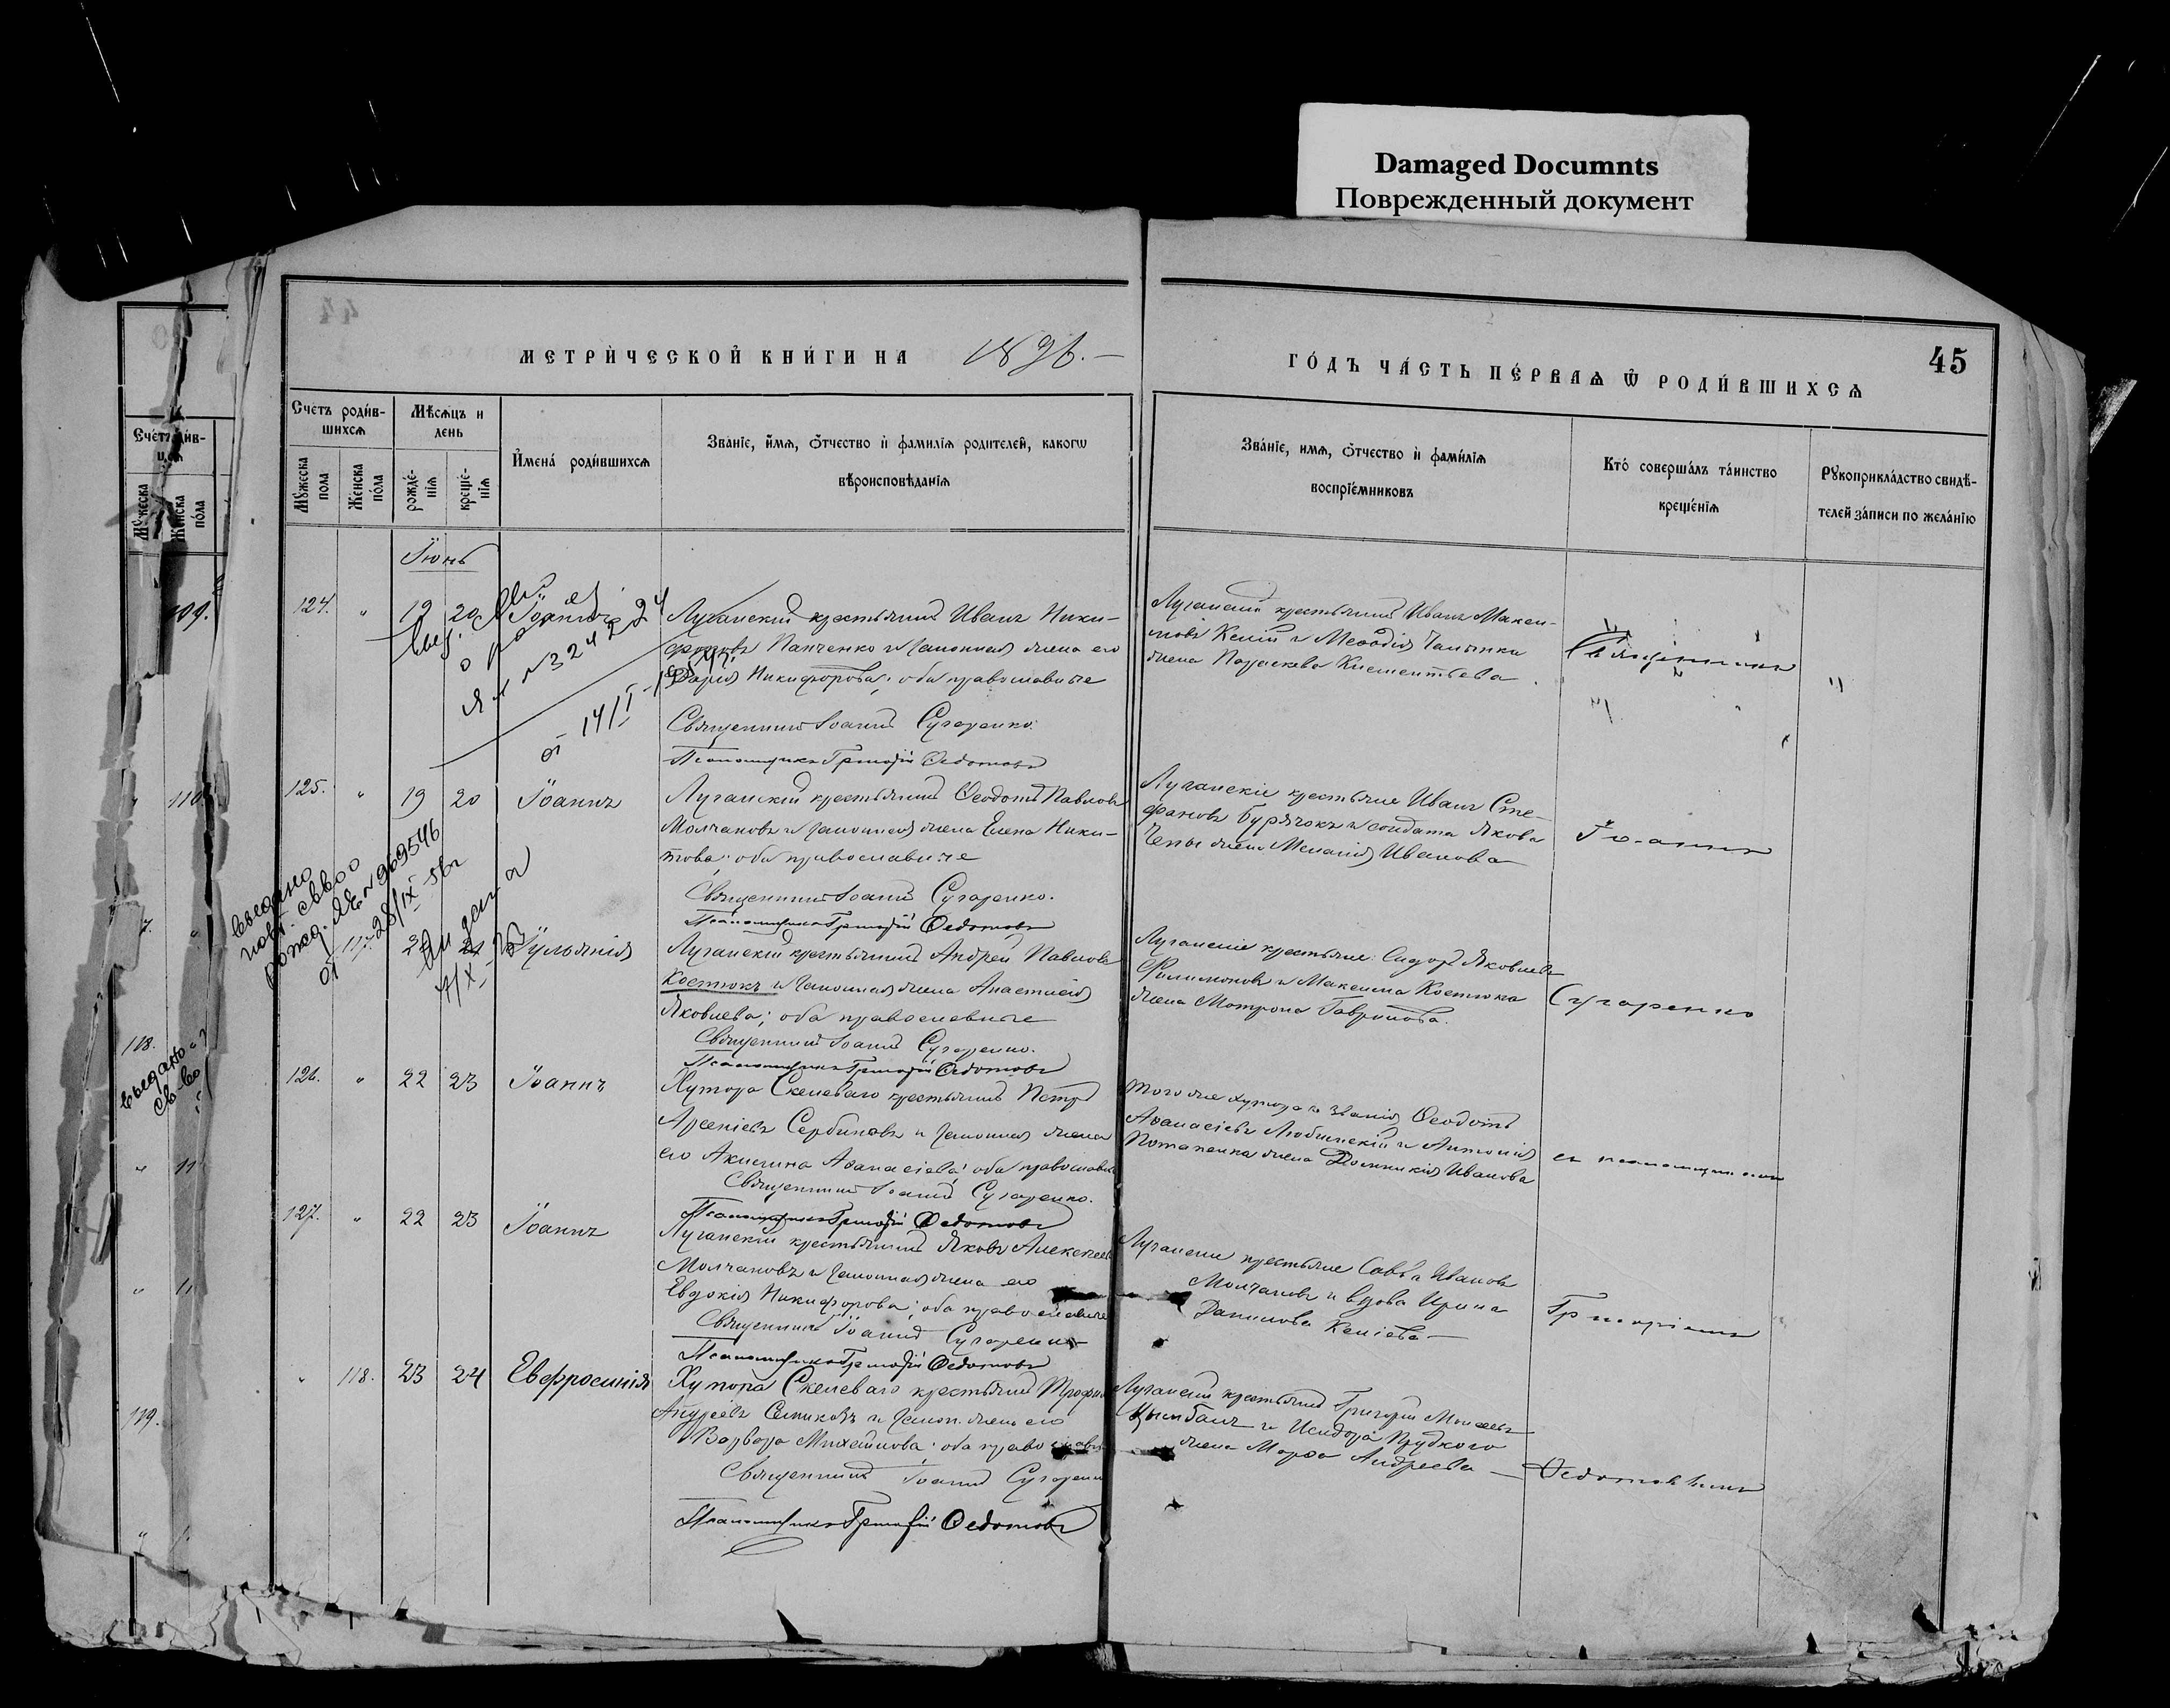 Damaged Documnts
Поврежденный документ
МЕТРИЧЕСКОЙ КНИГИ НА 1896.
ГОДЪ ЧАСТЬ ПЕРВАѦ Ѿ РОДИВШИХСѦ
45
Счетъ родив-
шихсѧ
Мѣсѧцъ и
день
Мꙋжеска
пола
Женска
пола
рожде-
нїѧ
креще-
нїѧ
Имена родившихсѧ
Званїе, имѧ, ѻтчество и фамилїѧ родителей, какогѡ
вѣроисповѣданїѧ
Званїе, имѧ, ѻтчество и фамилїѧ
воспрїемниковъ
Кто совершалъ таинство
крещенїѧ
Рꙋкоприкладство свидѣ-
телей записи по желанїю
Іюнь
124. " 19 20 Іоаннъ
Луганскій крестьянинъ Иванъ Ники-
форовъ Панченко и законная жена его
Дарія Никифорова; оба православные
Священникъ Іоаннъ Сугаренко.
Псаломщикъ Григорій Ѳедотовъ
Луганскій крестьянинъ Иванъ Макси-
мовъ
жена Параскева Климентьева
Священникъ
125. " 19 20 Іоаннъ
Луганскій крестьянинъ Ѳеодотъ Павловъ
Молчановъ и законная жена Елена Ники-
това; оба православные
Священникъ Іоаннъ Сугаренко.
Псаломщикъ Григорій Ѳедотовъ
Луганскіе крестьяне Иванъ Сте-
фановъ Бурячокъ и солдата Якова
жена Меланія Иванова
Іоаннъ
Выдано
повт. св-во о
рожд. ЯЕ № 969546
от 28/IX-56г
117. Іульянія
Луганскій крестьянинъ Андрей Павловъ
Костюкъ и законная жена Анастасія
Яковлева; оба православные
Священникъ Іоаннъ Сугаренко.
Псаломщикъ Григорій Ѳедотовъ
Луганскіе крестьяне: Сидоръ Яковлевъ
Филимоновъ и Максима Костюка
жена Матрона Гаврилова.
Сугаренко
126. " 22 23 Іоаннъ
Хутора Скелеваго крестьянинъ Петръ
Арсеніевъ Сербиновъ и законная жена
его Акилина Аѳанасіева; оба православн
Священникъ Іоаннъ Сугаренко.
Псаломщикъ Григорій Ѳедотовъ
того же хутора и званія Ѳеодотъ
Аѳанасіевъ Любинскій и Антонія
Потапенка жена Домникія Иванова
съ псаломщикомъ
127. " 22 23 Іоаннъ
Луганскій крестьянинъ Яковъ Алексѣевъ
Молчановъ и законная жена его
Евдокія Никифорова; оба православные
Священникъ Іоаннъ Сугаренко
Псаломщикъ Григорій Ѳедотовъ
Луганскіе крестьяне Савва Ивановъ
Молчановъ и вдова Ирина
Данилова
Григоріемъ
" 118. 23 24 Евфросинія
Хутора Скелеваго крестьянинъ Трофимъ
Андреевъ Семиковъ и закон. жена его
Варвара Михайлова; оба православн
Священникъ Іоаннъ Сугаренко
Псаломщикъ Григорій Ѳедотовъ
Луганскій крестьянинъ Григорій Моисеевъ
Цымбалъ и Исидора Прудкого
жена Марѳа Андреева
Ѳедотовымъ
109.
110
118.
выдано
св-во
119.